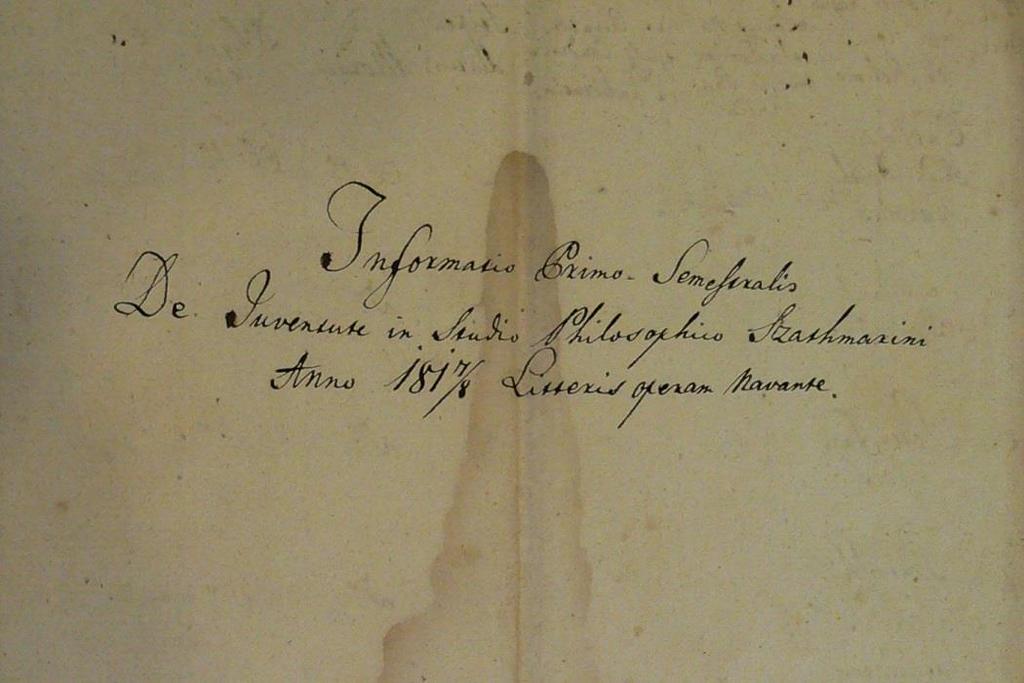 Informatio Primo-Semestralis
De Juventute in Studio Philosophico Szathmarini
Anno 1817/8 Litteris operam Navante.